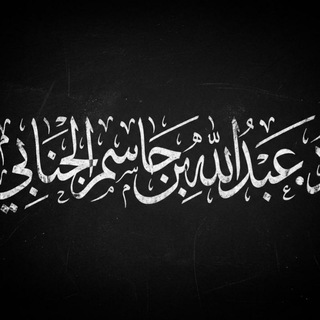 د. عَبْدُ اللهِ بْنِ جَاسِم الجَنَابِي